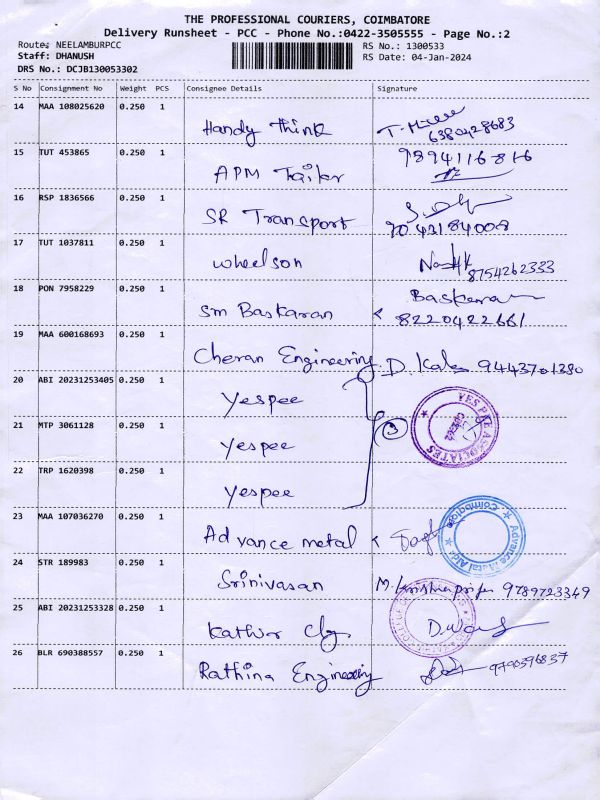 THE PROFESSIONAL COURIERS, COIMBATORE
Delivery Runsheet - PCC - Phone No.:0422-3505555 - Page No.:2
Route: NEELAMBURPCC RS No.: 1300533
Staff: DHANUSH RS Date: 04-Jan-2024
DRS No.: DCJB130053302
S No Consignment No Weight PCS Consignee Details Signature
14 MAA 108025620 0.250 1
Handy Think 6380428683
15 TUT 453865 0.250 1 9894116816
APM Tailor
16 RSP 1836566 0.250 1
SR Transport 9043184008
17 TUT 1037811 0.250 1
Wheelson 8754262333
18 PON 7958229 0.250 1 Baskaran
SM Baskaran 8220422661
19 MAA 600168693 0.250 1
Cheran Engineering D. Kala 9443701380
20 ABI 20231253405 0.250 1
Yespee YES PEE ASSOCIATES
21 MTP 3061128 0.250 1 3
Yespee
22 TRP 1620398 0.250 1
Yespee
23 MAA 107036270 0.250 1
Advance metal Advance Metal Aids Coimbatore
24 STR 189983 0.250 1
Srinivasan 9789723349
25 ABI 20231253328 0.250 1
Kathir Clg.
26 BLR 690388557 0.250 1
Rathina Engineering 9790596837